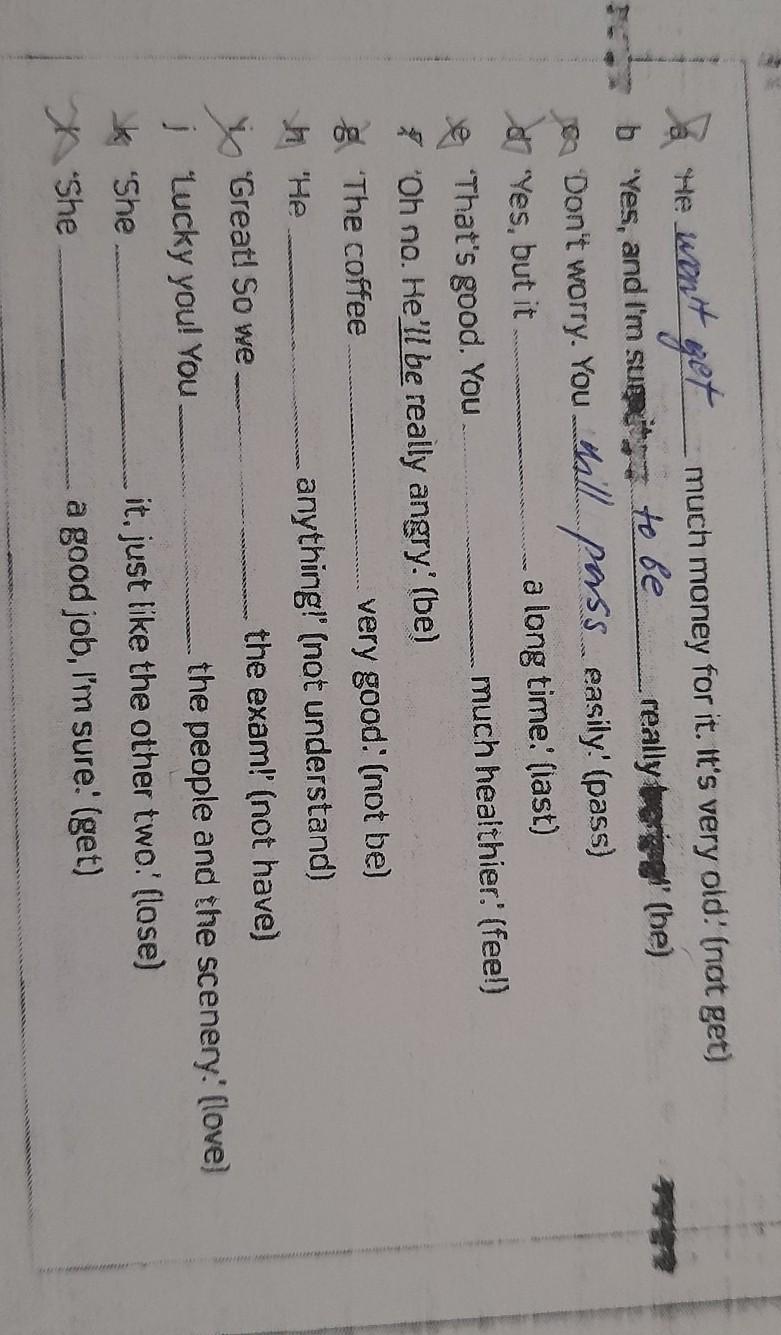 a 'He won't get much money for it. It's very old.' (not get)
b 'Yes, and I'm to be really (be)
c 'Don't worry. You will pass easily.' (pass)
d 'Yes, but it a long time.' (last)
e 'That's good. You much healthier.' (feel)
f 'Oh no. He'll be really angry.' (be)
g 'The coffee very good.' (not be)
h 'He anything!' (not understand)
i 'Great! So we the exam!' (not have)
j 'Lucky you! You the people and the scenery.' (love)
k 'She it, just like the other two.' (lose)
l 'She a good job, I'm sure.' (get)